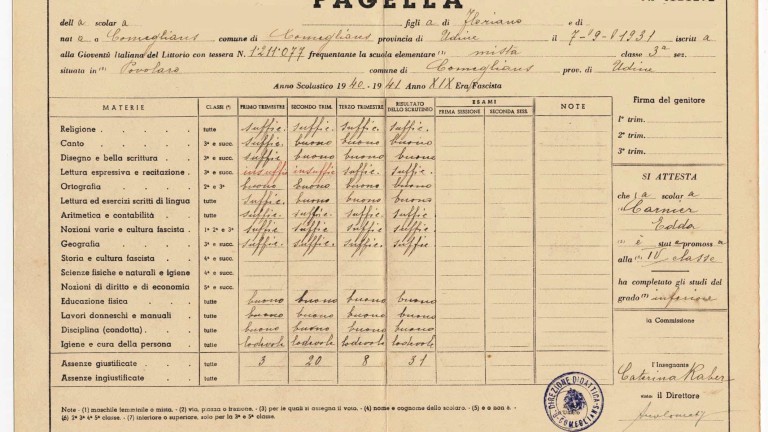 PAGELLA
dell a scolar a figli a di Floriano e di
nat a a Comeglians comune di Comeglians provincia di Udine il 7-9-1931 iscritt a
alla Gioventù Italiana del Littorio con tessera N. 1211077 frequentante la scuola elementare (1) mista classe 3ª sez.
situata in (2) Povolaro comune di Comeglians prov. di Udine
Anno Scolastico 1940-1941 Anno XIX Era Fascista
MATERIE CLASSE (3) PRIMO TRIMESTRE SECONDO TRIM. TERZO TRIMESTRE RISULTATO DELLO SCRUTINIO ESAMI PRIMA SESSIONE SECONDA SESS. NOTE
Religione tutte suffic. suffic. suffic. suffic.
Canto 3ª e succ. suffic. buono buono buono
Disegno e bella scrittura 3ª e succ. suffic. suffic. buono buono
Lettura espressiva e recitazione 3ª e succ. insuffic insuffic suffic. suffic.
Ortografia 2ª e 3ª buono buono buono buono
Lettura ed esercizi scritti di lingua tutte suffic. buono buono buono
Aritmetica e contabilità tutte suffic. suffic. suffic. suffic.
Nozioni varie e cultura fascista 1ª 2ª e 3ª suffic. suffic. suffic. suffic.
Geografia 3ª e succ. suffic. suffic. suffic. suffic.
Storia e cultura fascista 4ª e succ.
Scienze fisiche e naturali e igiene 4ª e succ.
Nozioni di diritto e di economia 5ª e succ.
Educazione fisica tutte buono buono buono buono
Lavori donneschi e manuali tutte buono buono buono buono
Disciplina (condotta) tutte buono buono buono buono
Igiene e cura della persona tutte lodevole lodevole lodevole lodevole
Assenze giustificate tutte 3 20 8 31
Assenze ingiustificate tutte
Note - (1) maschile femminile o mista. - (2) via, piazza o frazione. - (3) per le quali si assegna il voto. - (4) nome e cognome dello scolaro. - (5) e o non è. -
(6) 2ª 3ª 4ª 5ª classe. - (7) inferiore o superiore, solo per la 3ª e 5ª classe.
DIREZIONE DIDATTICA
COMEGLIANS
Firma del genitore
1° trim.
2° trim.
3° trim.
SI ATTESTA
che l a scolar a
Carnier
Edda
(5) è stat a promoss a
alla (6) IV classe
ha completato gli studi del
grado (7) inferiore
la Commissione
l'Insegnante
Caterina Raber
visto il Direttore